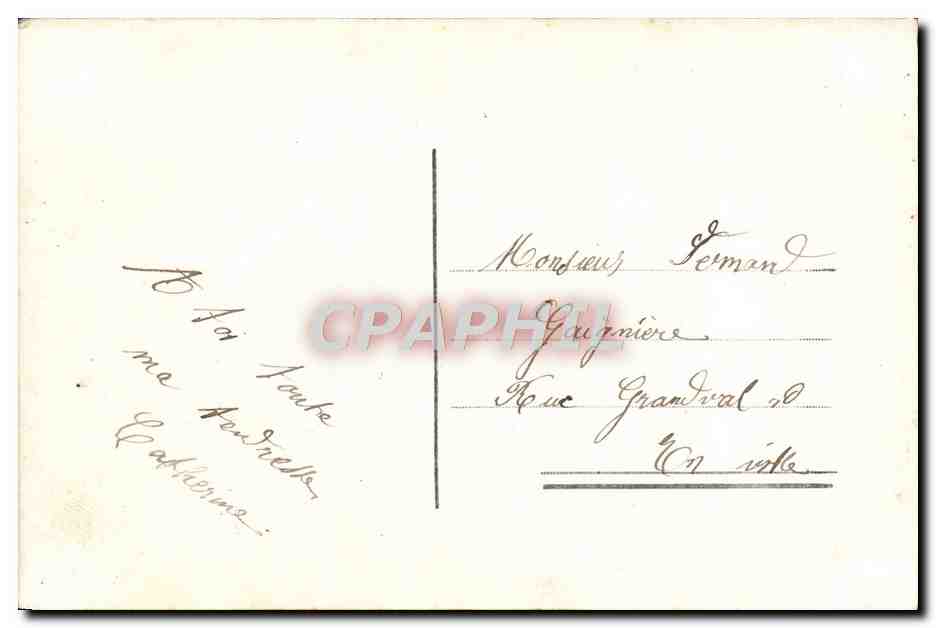 A toi toute
ma tendresse,
Catherine.
Monsieur Fernand
Gaignière
Rue Grandval
En ville
CPAPHIL